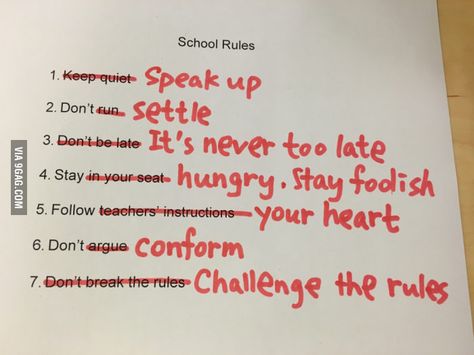 School Rules
1. Keep quiet Speak up
2. Don't run settle
3. Don't be late It's never too late
4. Stay in your seat hungry. Stay foolish
5. Follow teachers' instructions your heart
6. Don't argue conform
7. Don't break the rules Challenge the rules
VIA 9GAG.COM